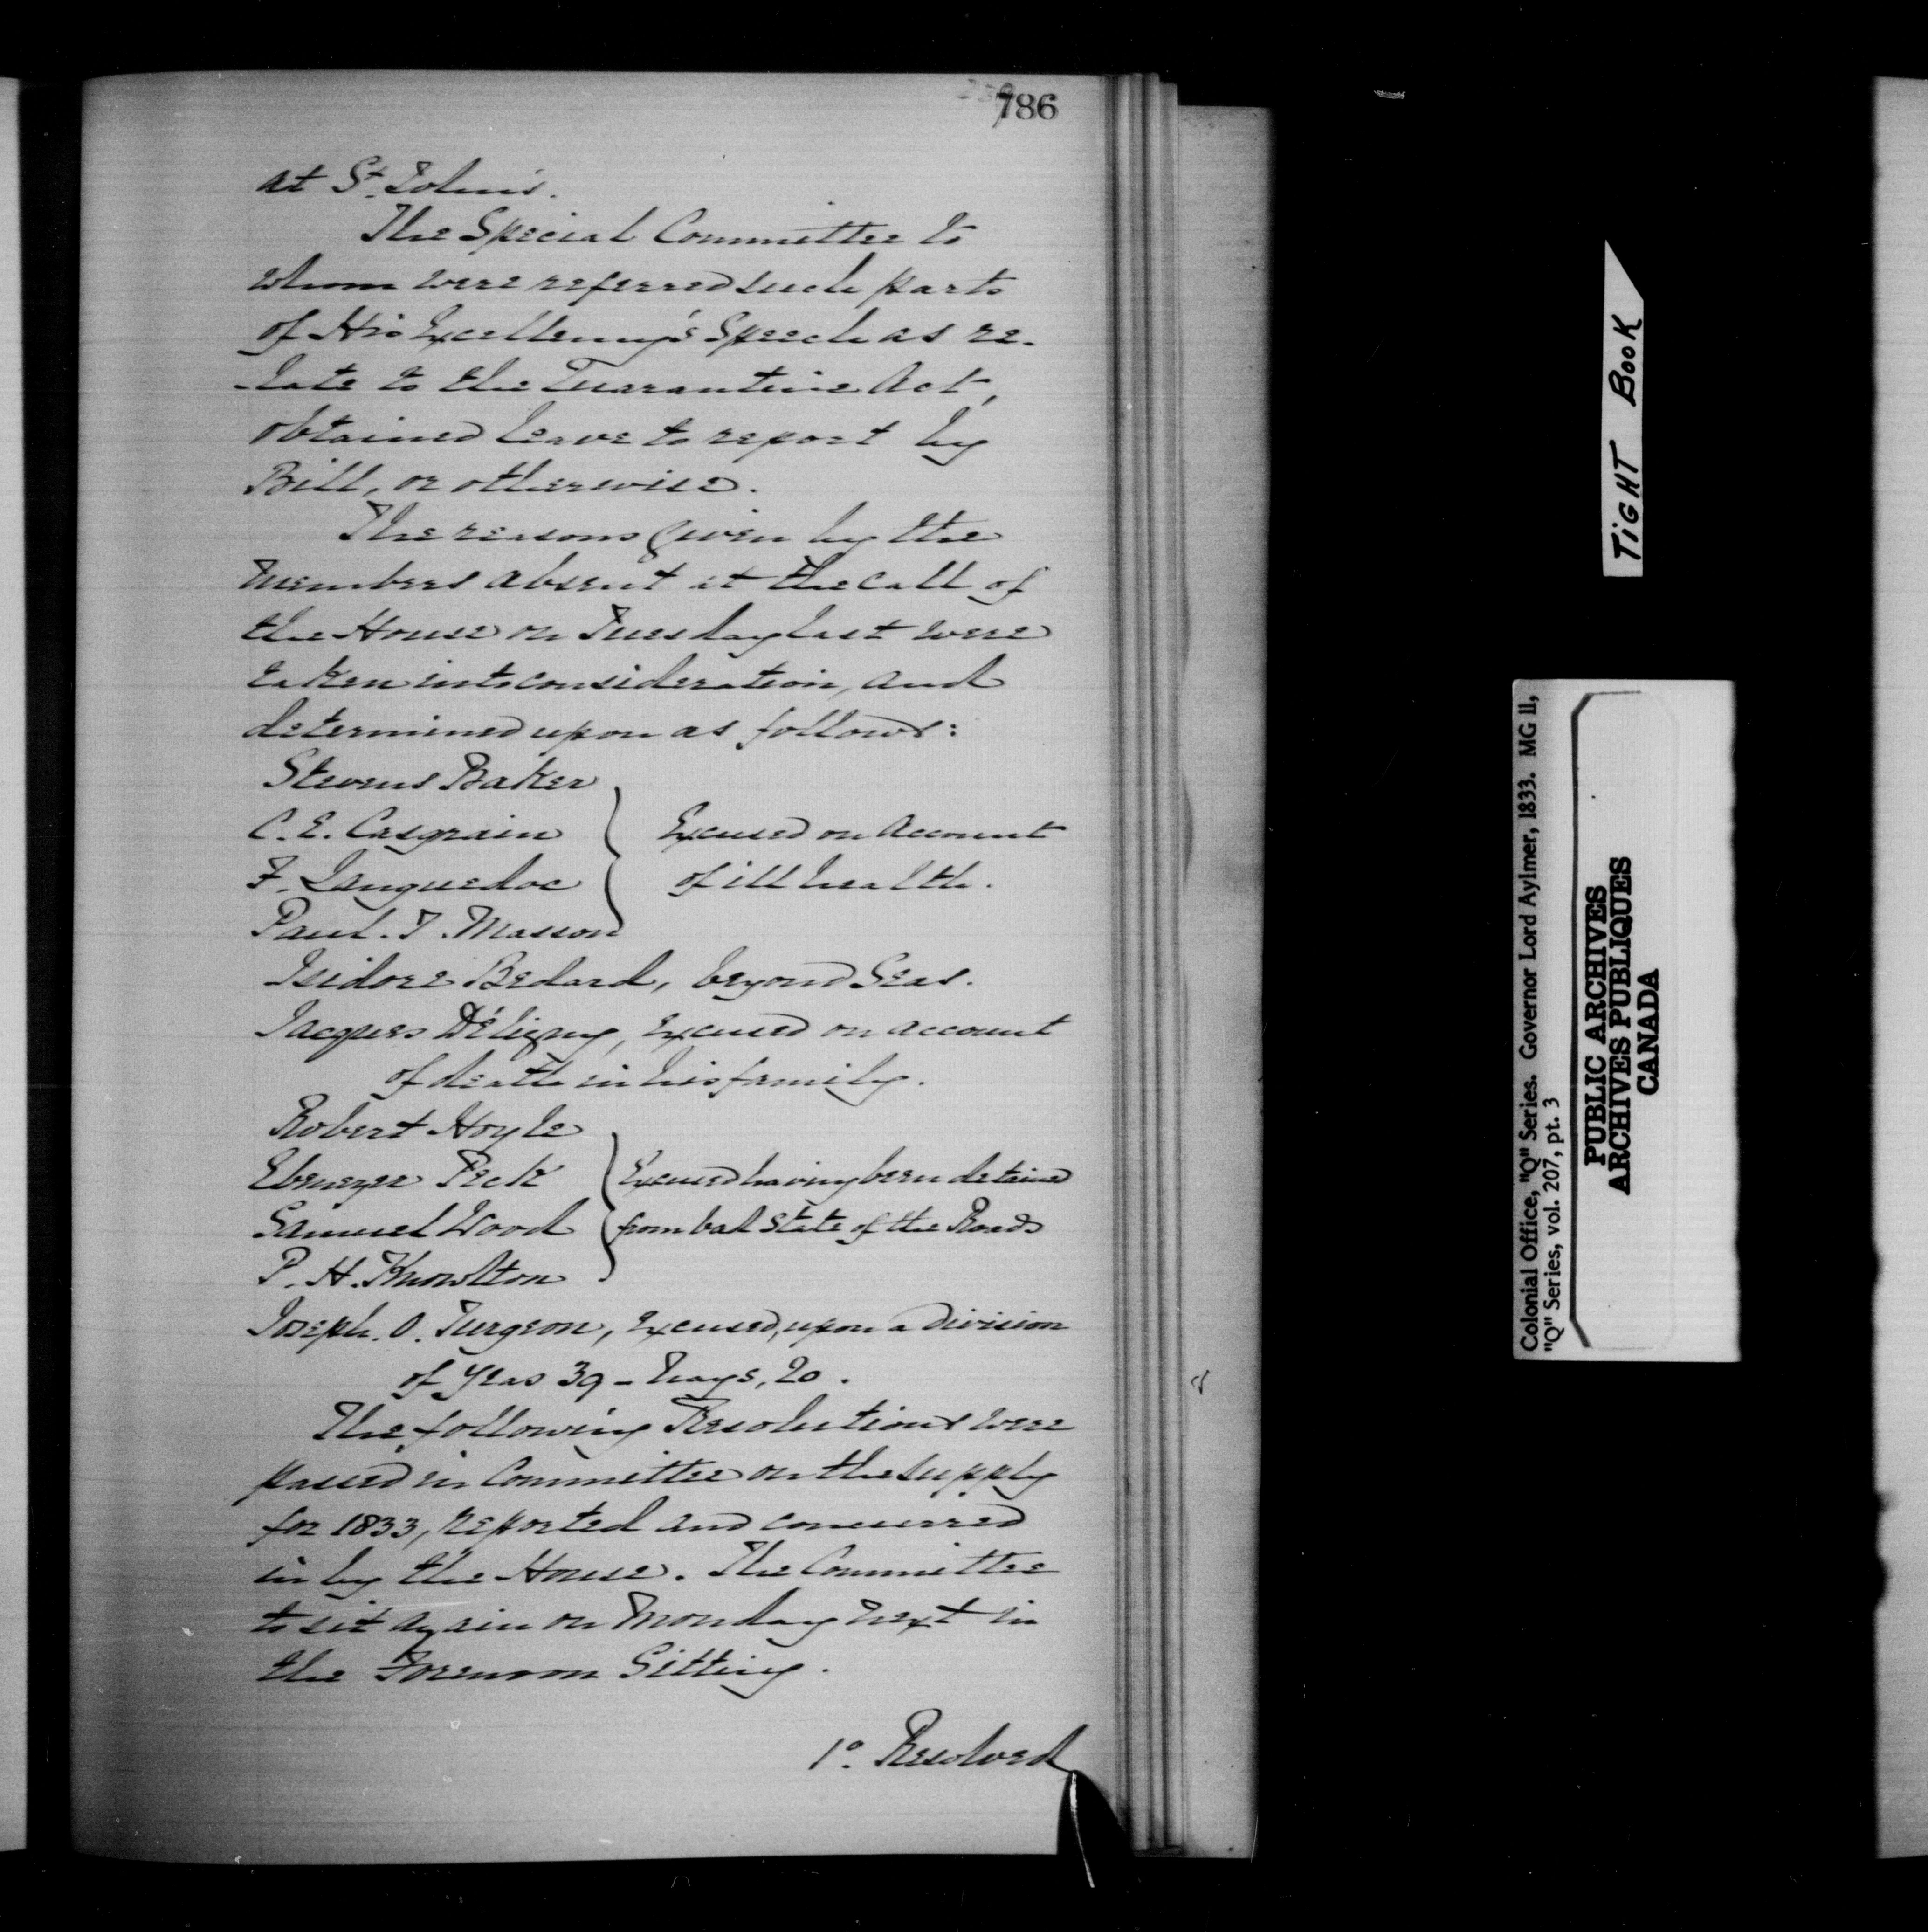 786
at St. John's.
The Special Committee to
whom were referred such parts
of His Excellency's Speech as re-
-late to the Quarantine Act,
obtained leave to report by
Bill, or otherwise.
The reasons given by the
Members absent at the Call of
the House on Tuesday last were
taken into consideration, and
determined upon as follows:
Stevens Baker
C. E. Casgrain
F. Languedoc
Paul. T. Masson
Excused on Account
of ill health.
Isidore Bedard, beyond Seas.
Jacques Déligny, excused on account
of death in his family.
Robert Hoyle
Ebenezer Peck
Samuel Wood
P. H. Knowlton
Excused having been detained
from bad state of the Roads
Joseph. O. Turgeon, Excused, upon a Division
of Yeas 39 - Nays, 20.
The following Resolutions were
passed in Committee on the supply
for 1833, reported and concurred
in by the House. The Committee
to sit again on Monday next in
the Forenoon Sitting.
1o. Resolved
TIGHT BOOK
Colonial Office, "Q" Series. Governor Lord Aylmer, 1833. MG 11,
"Q" Series, vol. 207, pt. 3
PUBLIC ARCHIVES
ARCHIVES PUBLIQUES
CANADA